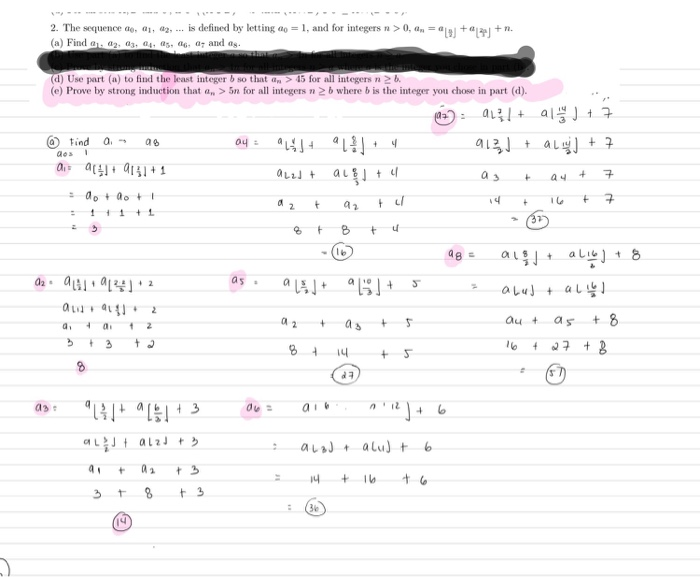 2. The sequence a₀, a₁, a₂, ... is defined by letting a₀ = 1, and for integers n > 0, aₙ = a⌊n/2⌋ + a⌊2n/3⌋ + n.
(a) Find a₁, a₂, a₃, a₄, a₅, a₆, a₇ and a₈.
(d) Use part (a) to find the least integer b so that aₙ > 45 for all integers n ≥ b.
(e) Prove by strong induction that aₙ > 5n for all integers n ≥ b where b is the integer you chose in part (d).
ⓐ Find a₁ → a8
a₀ = 1
a₁ = a⌊1/2⌋ + a⌊2/3⌋ + 1
= a₀ + a₀ + 1
= 1 + 1 + 1
= 3
a₂ = a⌊2/2⌋ + a⌊2·2/3⌋ + 2
a⌊1⌋ + a⌊4/3⌋ + 2
a₁ + a₁ + 2
3 + 3 + 2
8
a₃ = a⌊3/2⌋ + a⌊6/3⌋ + 3
a⌊3/2⌋ + a⌊2⌋ + 3
a₁ + a₂ + 3
3 + 8 + 3
14
a₄ = a⌊4/2⌋ + a⌊8/3⌋ + 4
a⌊2⌋ + a⌊8/3⌋ + 4
a₂ + a₂ + 4
8 + 8 + 4
= 16
a₅ = a⌊5/2⌋ + a⌊10/3⌋ + 5
a₂ + a₃ + 5
8 + 14 + 5
27
a₆ = a⌊6 12⌋ + 6
= a⌊3⌋ + a⌊4⌋ + 6
= 14 + 16 + 6
= 36
a₇ = a⌊7/2⌋ + a⌊14/3⌋ + 7
a⌊7/2⌋ + a⌊14/3⌋ + 7
a₃ + a₄ + 7
14 + 16 + 7
= 37
a8 = a⌊8/2⌋ + a⌊16/3⌋ + 8
= a⌊4⌋ + a⌊16/3⌋
a₄ + a₅ + 8
16 + 27 + 8
= 57